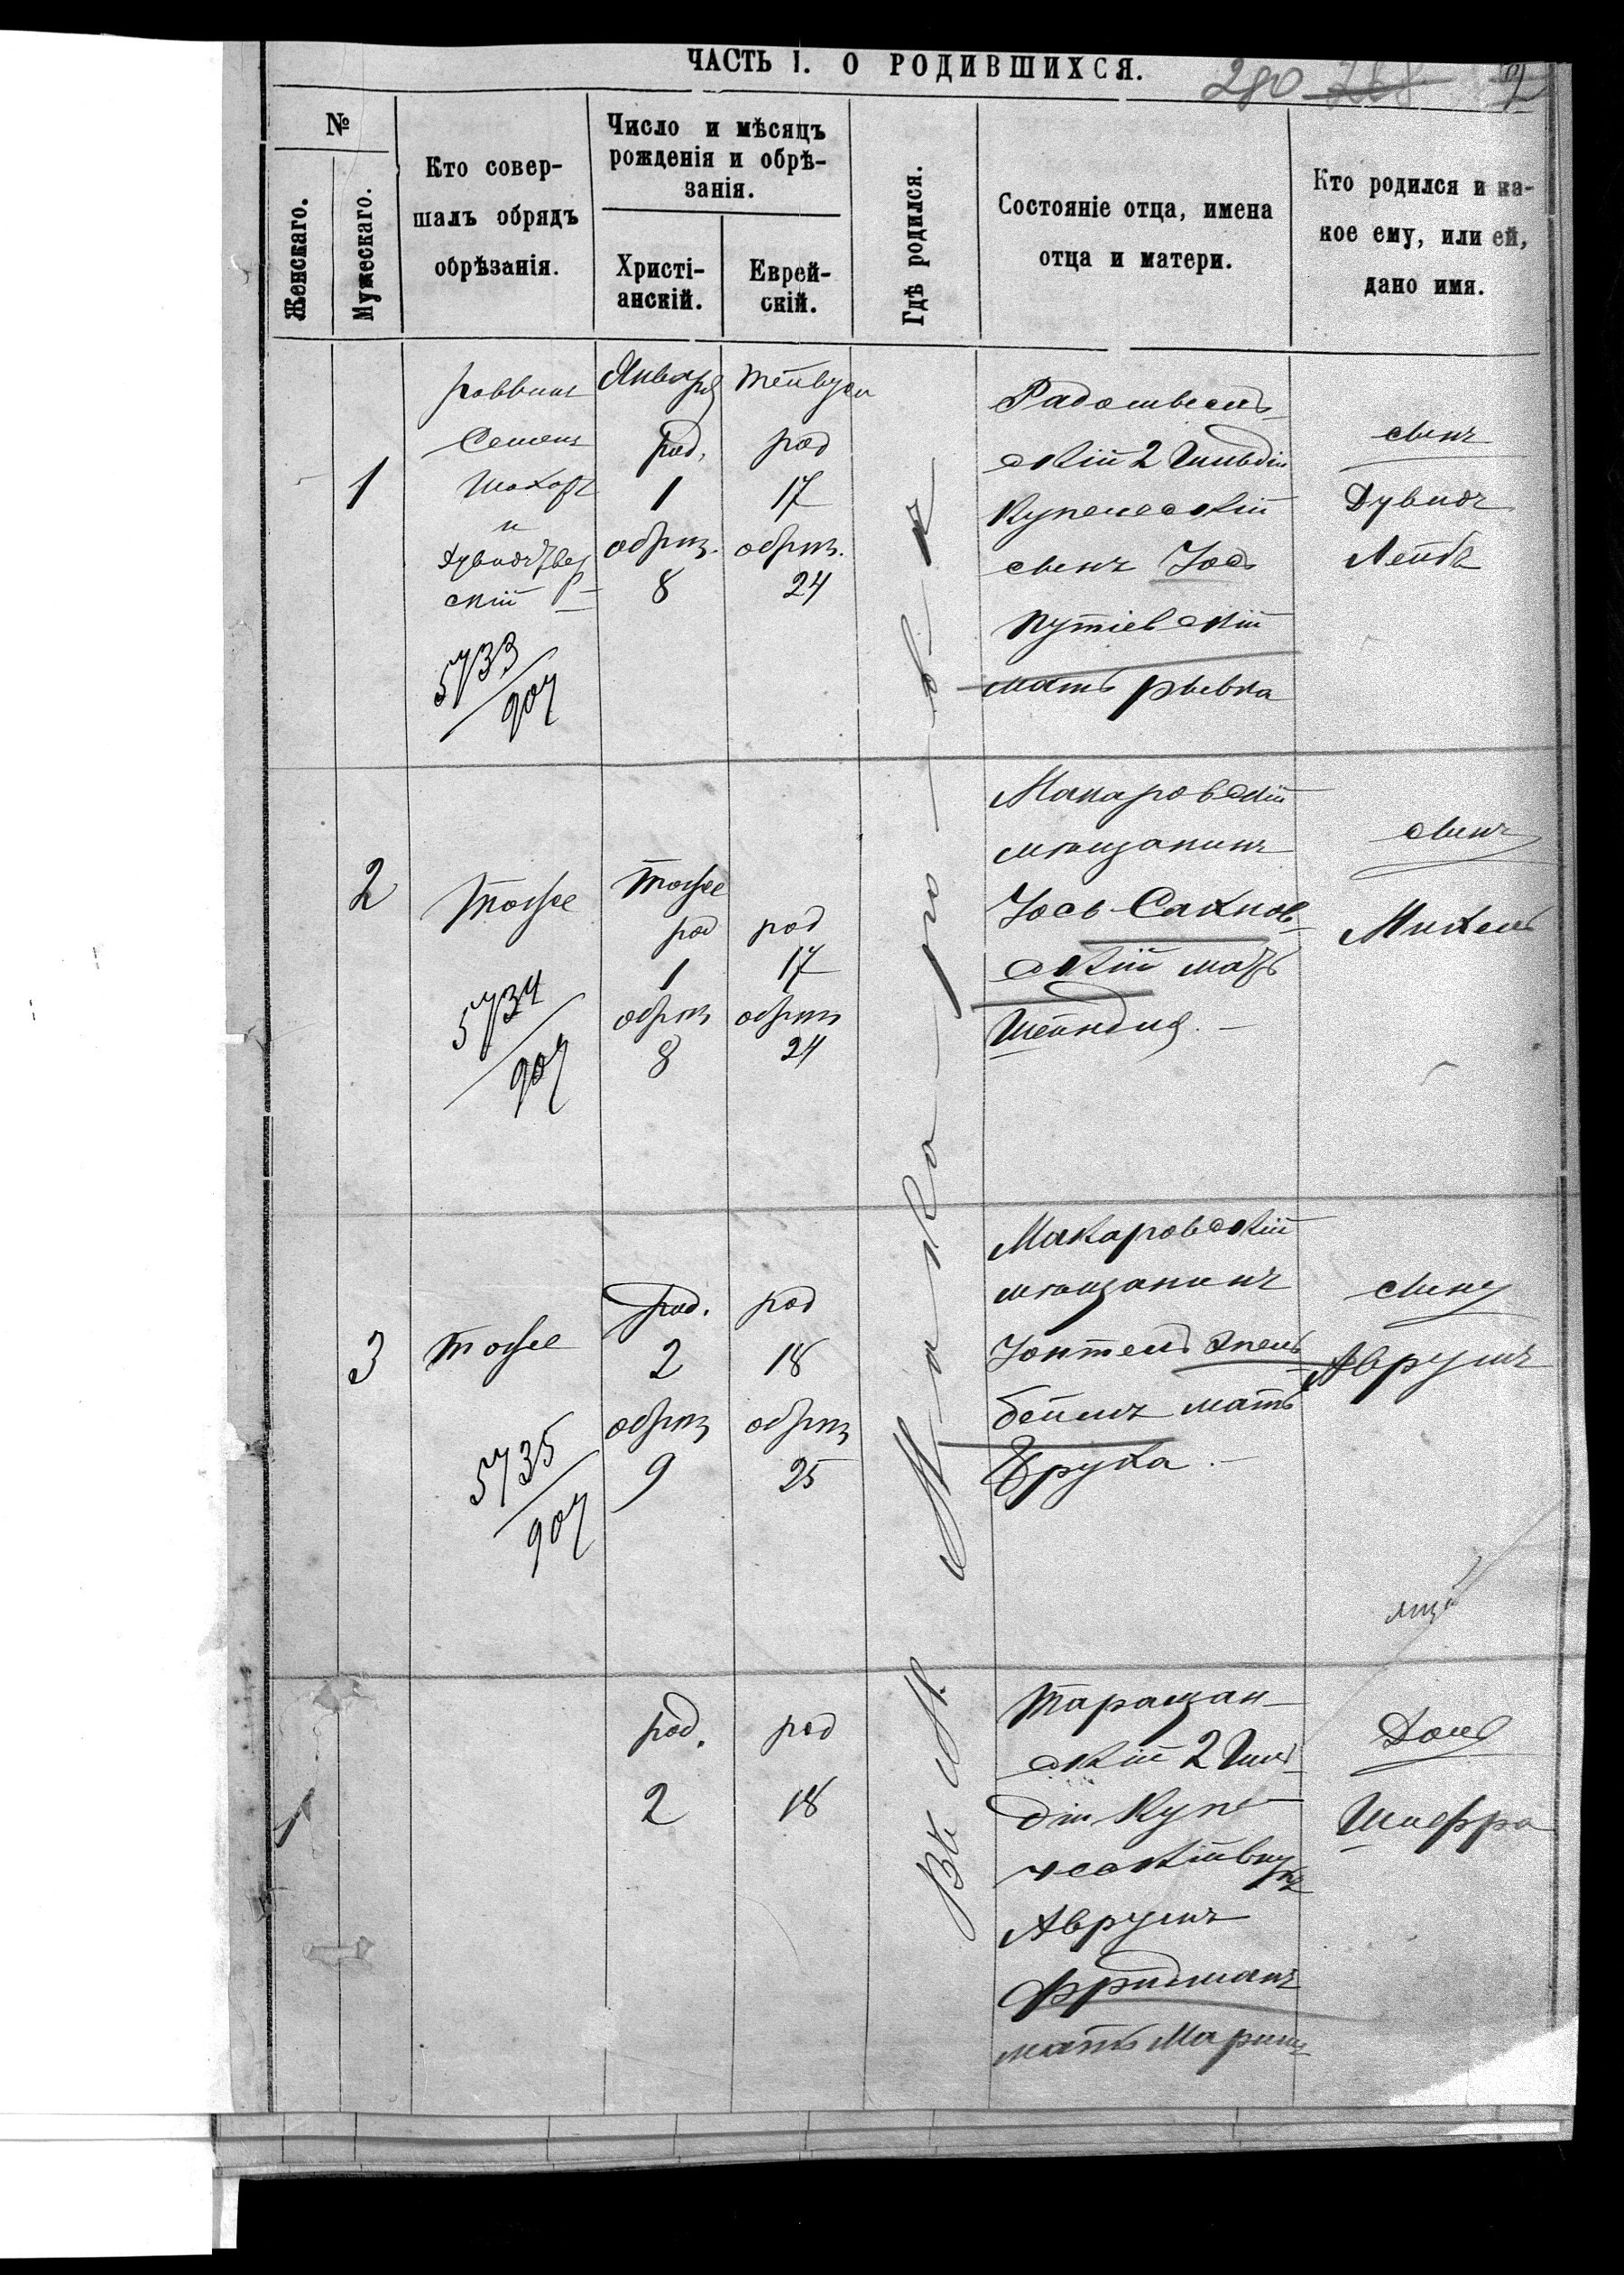 ЧАСТЬ I. О РОДИВШИХСЯ.
280 268 2
№
Женскаго.
Мужескаго.
Кто совер-
шалъ обрядъ
обрѣзанія.
Число и мѣсяцъ
рожденія и обрѣ-
занія.
Христі-
анскій.
Еврей-
скій.
Гдѣ родился.
Состояніе отца, имена
отца и матери.
Кто родился и ка-
кое ему, или ей,
дано имя.
1
раввинъ
Семенъ
и
скій
5733
907
Января
род.
1
обрѣз.
8
род
17
обрѣз.
24
Въ М. Макаровѣ
Радомысль-
скій 2 Гильдіи
Купеческій
сынъ Іось
Путіевскій
мать Рывка
сынъ
Дувидъ
Лейбъ
2
тоже
5734
907
тоже
род
1
обрѣз
8
род
17
обрѣз
24
Макаровскій
мѣщанинъ
Іось Сахнов-
скій мать
Шейндля.
сынъ
Михель
3
тоже
5735
907
род.
2
обрѣз
9
род
18
обрѣз
25
Макаровскій
мѣщанинъ
Іонтель Апель-
беймъ мать
Бруха.
сынъ
Аврумъ
1
род.
2
род
18
Таращан-
скій 2 Гиль-
діи Купе-
ческій внукъ
Аврумъ
Фридманъ
мать Маріимъ
Дочь
Шифра